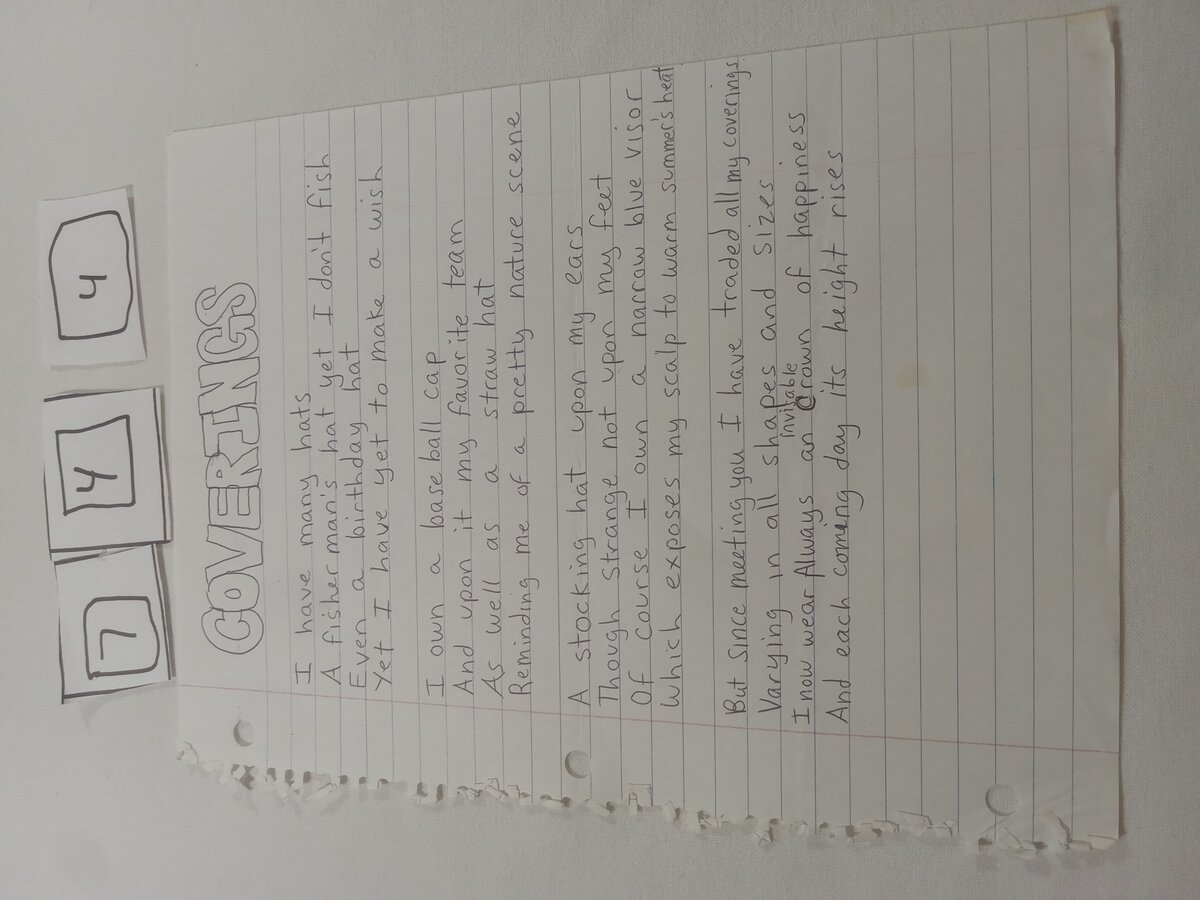 7 4 4
COVERINGS
I have many hats
A fisherman's hat yet I don't fish
Even a birthday hat
Yet I have yet to make a wish
I own a baseball cap
And upon it my favorite team
As well as a straw hat
Reminding me of a pretty nature scene
A stocking hat upon my ears
Though strange not upon my feet
Of course I own a narrow blue visor
Which exposes my scalp to warm summer's heat
But Since meeting you I have traded all my coverings
Varying in all shapes and sizes
I now wear Always an invitable Crown of happiness
And each coming day its height rises